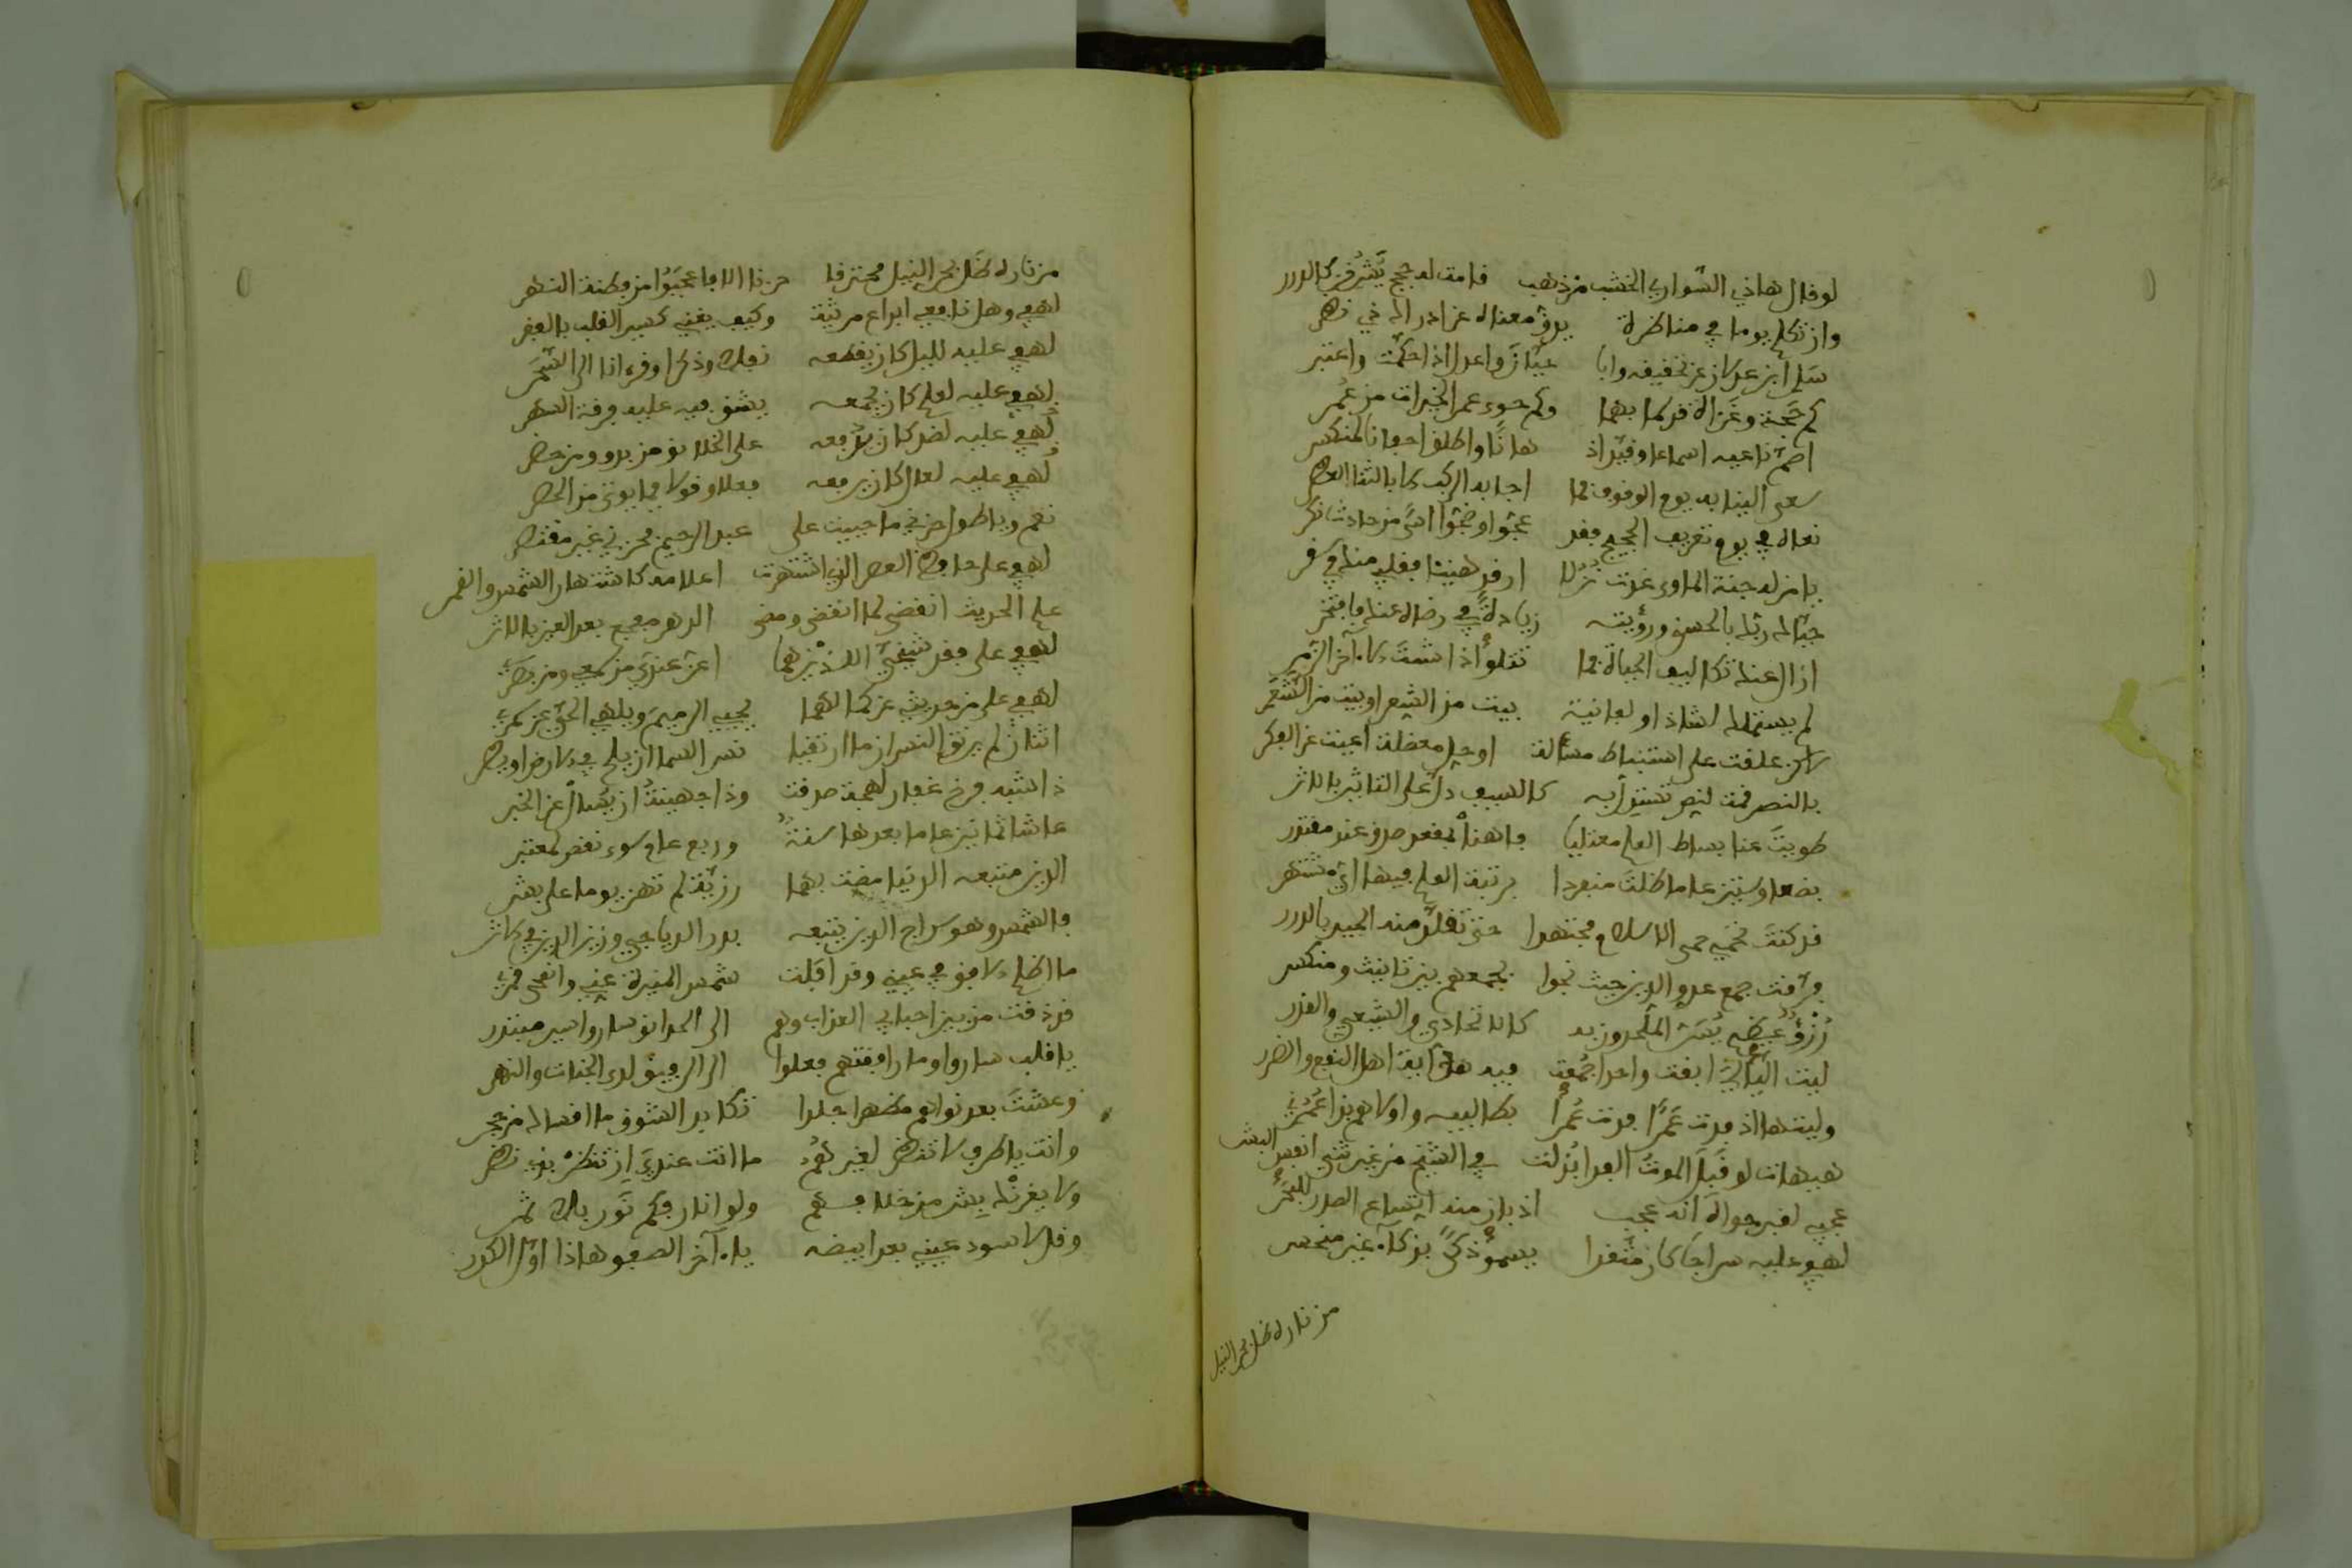 لو قال هاذي السواري الخشب من ذهب قامت له حجج يشرفن كالدرر
وان تكلم يوما في مناظرة يدق معناه عن ادراك ذي نظر
سل ابن عدلان عن تحقيقه وأبا حيان واعدل اذا حكمت واعتبر
كم حجة وغزاة قد سما بهما وكم حوى عمر الخيرات من عمر
اصم ناعيه اسماعا وقيد اذ هانا واطلق اجفانا لمنكسر
سعى الينا به يوم الوقوف فما اجابه الركب الا بالثنا العطر
نعاه في يوم تعريف الحجيج فقد عجوا وضجوا اسى من حادث نكر
يا من له جنة الماوى غدت نزلا ارقد هنيئا فقلبي منك في سفر
حباك ربك بالحسنى ورؤيته زيادة في رضاه عنك فافتخر
ازال عنك تكاليف الحياة فما تتلو اذا شئت الا آخر الزمر
لم يستملك انشاد او لغانية بيت من الشعر او بيت من الشعر
لاكن عكفت على استنباط مسألة او حل معضلة اعيت عن الفكر
بالنصر قمت لنص تستدل به كالسيف دل على التاثير بالاثر
طويت عنا بساط العلم معتليا فاهنا بمقعد صدق عند مقتدر
بضعا وستين عاما ظلت منفردا برتبة العلم فيها اي مشتهر
قد كنت تحمي حمى الاسلام مجتهدا حتى تقلد منه الجيد بالدرر
فرقت جمع عدو الدين حيث نحوا بجمعهم بين تانيث ومنكسر
ليت الليالي ابقت واحدا جمعت فيه هدى ابقا اهل النفع والضرر
وليتها اذ فدت عمرا فدت عمرا بطالبيه واولاهم بذا عمري
هيهات لو قبل الموت الفدا بذلت في الشيخ من غير ثني انفس البشر
عجبي لقبر حواه انه عجب اذ بان منه اتساع الصدر للبحر
لهفي عليه سراجا كان متقدا يسمو ذكى بذكاء غير منحصر
من ناره ظل بحر النيل
من ناره ظل بحر النيل محترقا حزنا الا فاعجبوا من فطنة النهر
لهفي وهل نافعي ابداع مرثية وكيف يغني كسير القلب بالفقر
لهفي عليه لليل كان يقطعه نفلا وذكرا وقرءانا الى السحر
لهفي عليه لعلم كان يجمعه يشق فيه عليه فرقة السهر
لهفي عليه لضر كان يدفعه على الخلائق من بدو ومن حضر
لهفي عليه لعدل كان يرفعه فعلا وقولا فما يوتى من الحصر
نعم ويا طول حزني ما حييت على عبد الرحيم فحزني غير مقتصر
لهفي على حافظ العصر الذي اشتهرت اعلامه كاشتهار الشمس والقمر
علم الحديث انقضى لما انقضى ومضى الدهر مفجع بعد العين بالاثر
لهفي على فقد شيخي اللذين هما اعز عندي من سمعي ومن بصري
لهفي على من حديثي عن كمالهما يحيي الرميم ويلهي الحي عن سمر
اثنان لم يرتق النسران ما ارتقيا نسر السما ان يلح في والارض ان يطر
ذا شبه فرخ عقاب لهجة صدقت وذا جهينة ان يسال عن الخبر
عاشا ثمانين عاما بعدها سنة وربع عام سوى نقص لمعتبر
الدين متبعه الدنيا مضت بهما رزية لم تهن يوما على بشر
فالشمس وهو سراج الدين يتبعه بدر الدياجي وزين الدين في الاثر
ما اظلم الافق في عيني وقد افلت شمس المنيرة عني وانمحى قمري
قد ذقت من بين احبابي العذاب وهم الى الحدائق ساروا سير مبتدر
يا قلب ساروا وما رافقتهم فعلوا الى الرفيق لدى الجنات والنهر
وعشت بعد نواهم مظهرا جلدا تكابد الشوق ما اقساك من حجر
وانت يا طرف لا تنظر لغيرهم ما انت عندي ان تنظر بذي نظر
ولا يغرنك بشر من خلافهم ولو انار فكم نور بلا ثمر
وقل لاسود عيني بعد ابيضه يا آخر الصفو هاذا اول الكدر